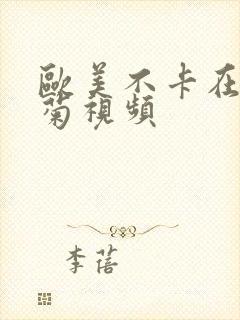 歐美不卡在
菊視頻
李蓓